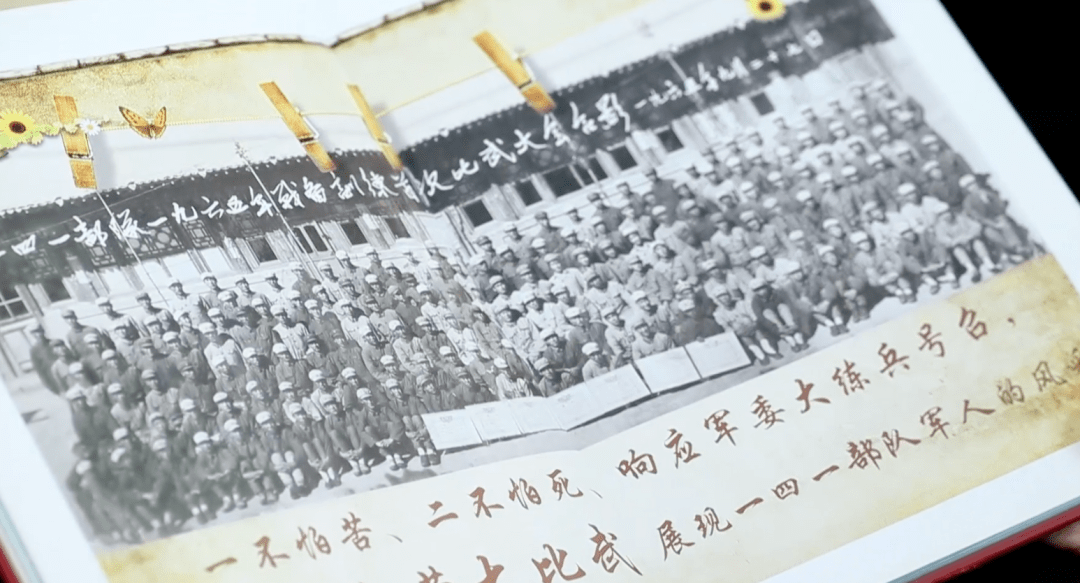 一四一部隊一九六五年战备訓練首次比武大会合影 一九六五年九月二十日
一不怕苦、二不怕死、响应军委大练兵号召，
大比武 展现一四一部队军人的风